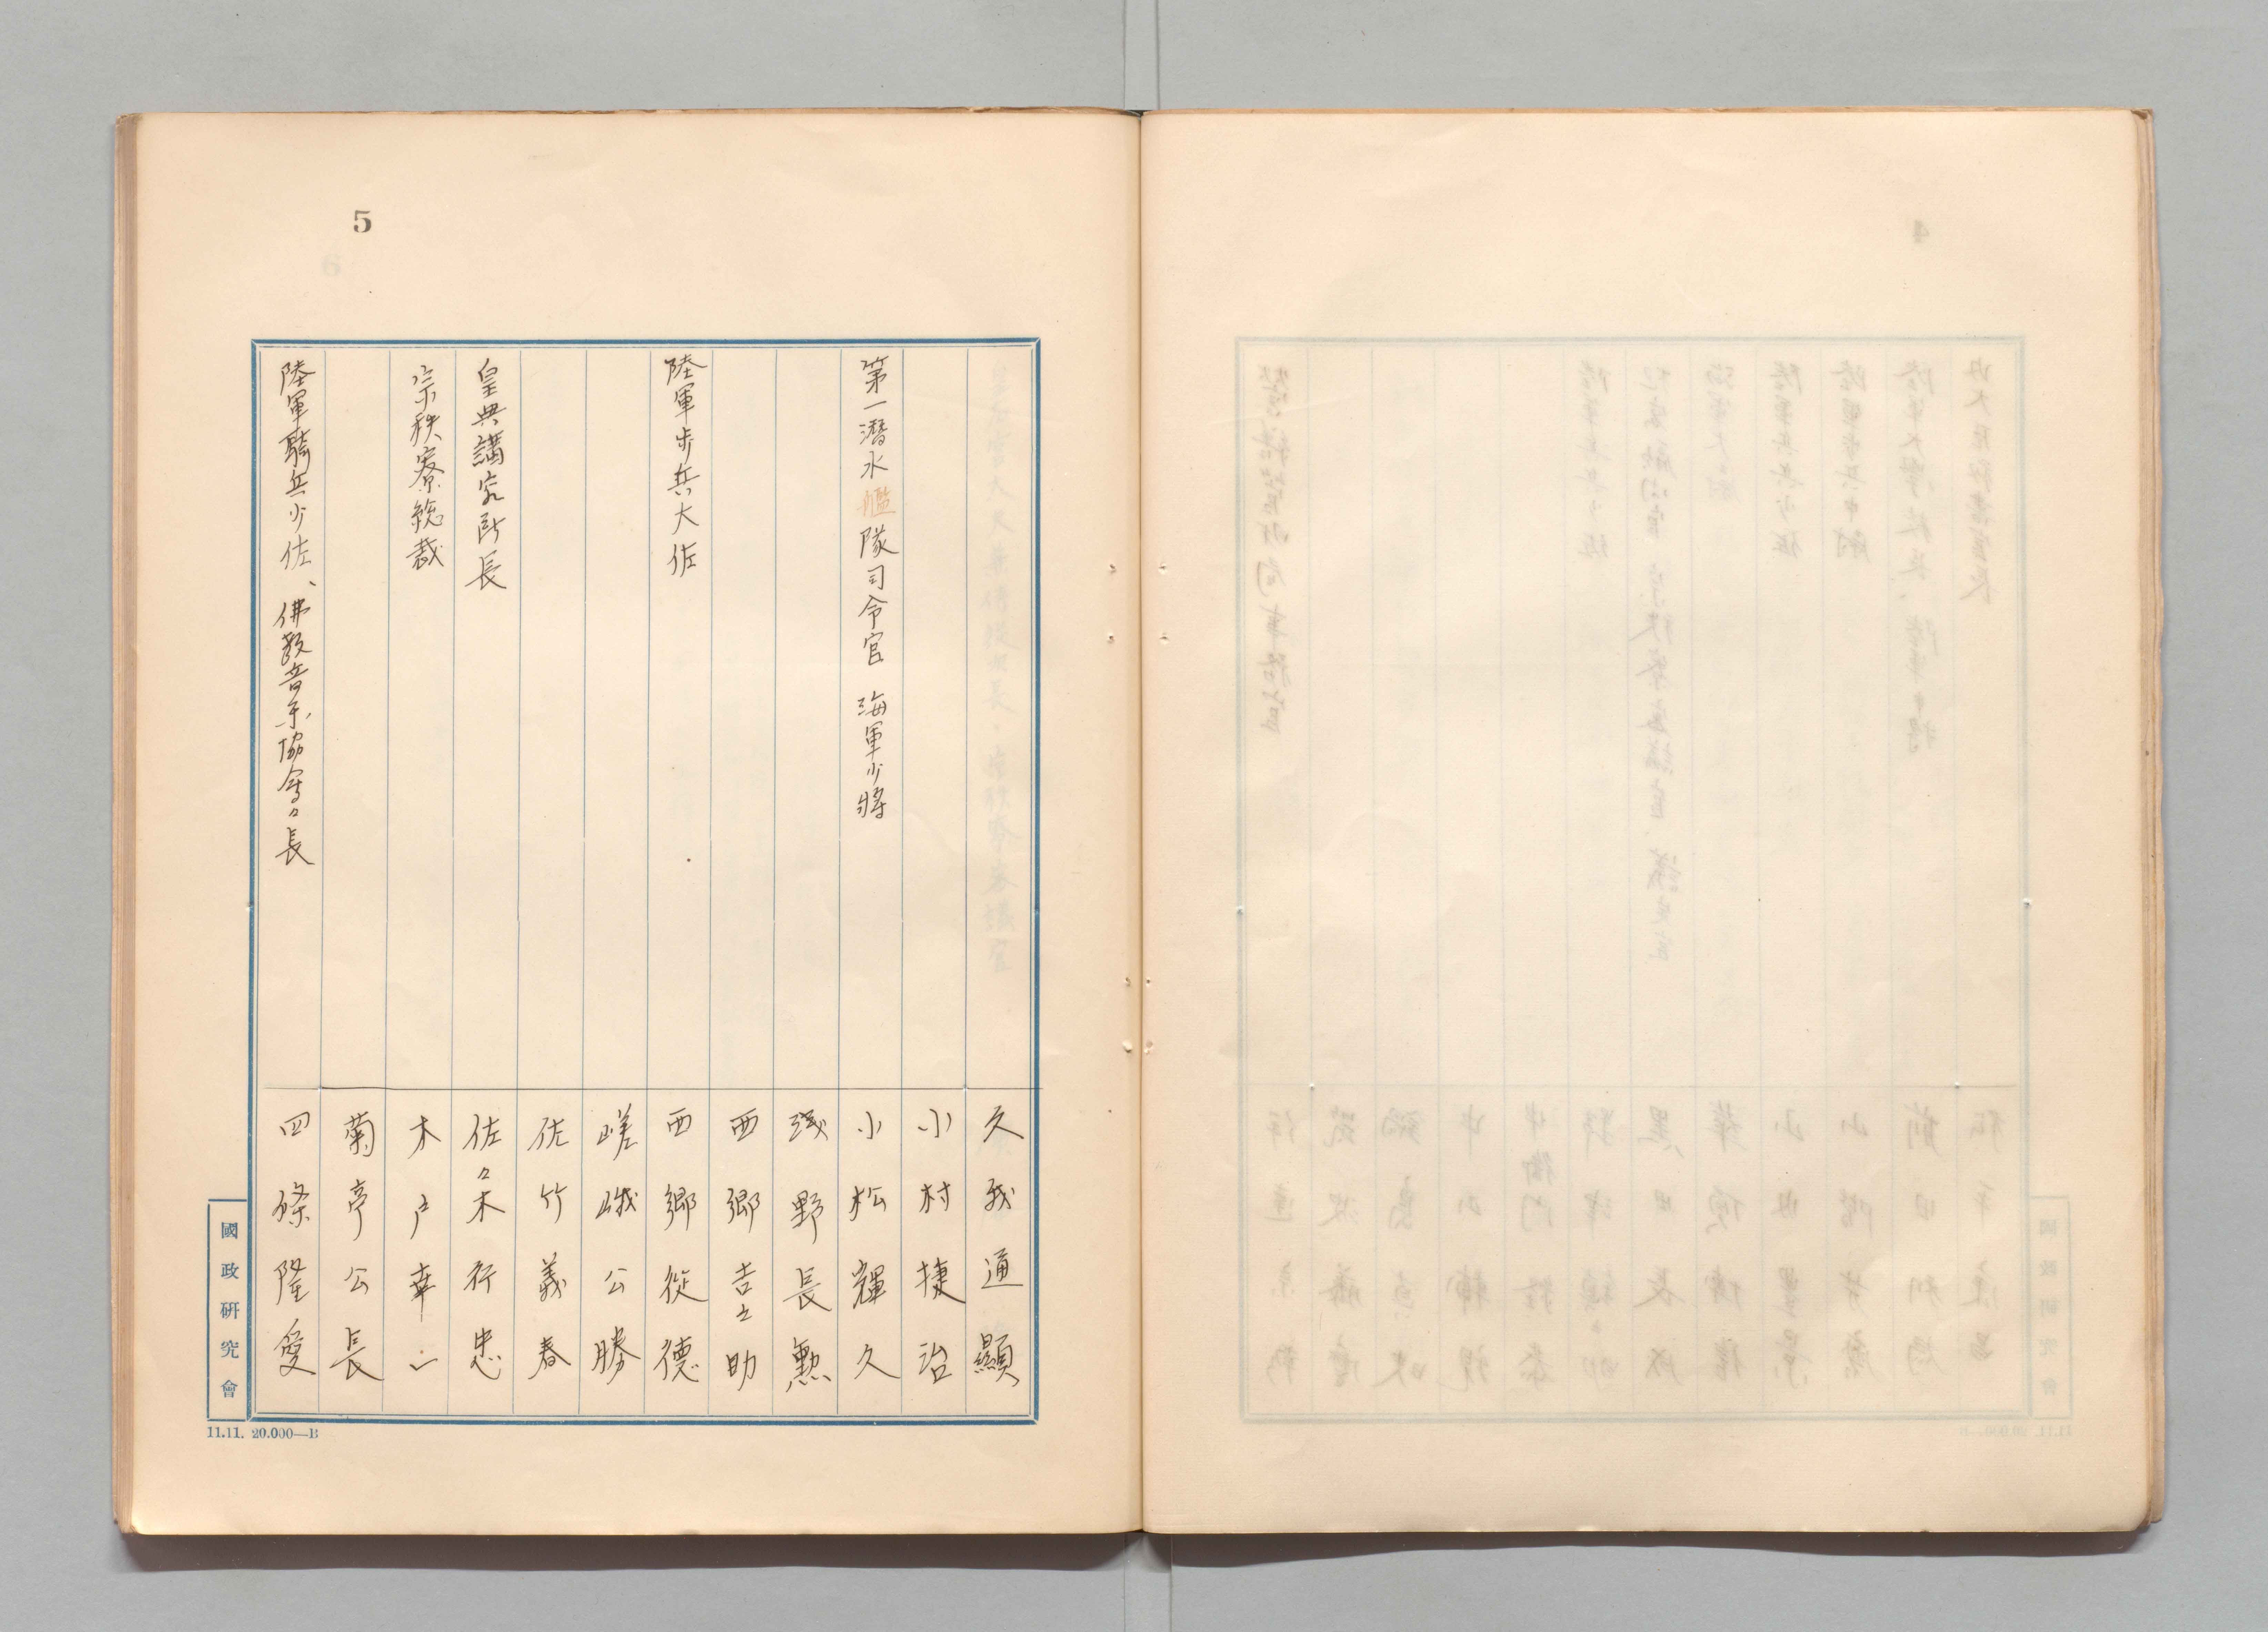 5
久我通顯
小村捷治
第一潛水艦隊司令官 海軍少將 小松輝久
浅野長勲
西郷吉之助
陸軍步兵大佐 西郷從德
嵯峨公勝
佐竹義春
皇典講究所長 佐々木行忠
宗秩寮総裁 木戸幸一
菊亭公長
陸軍騎兵少佐、佛教音楽協會々長 四條隆愛
國政研究會
11.11. 20.000—B